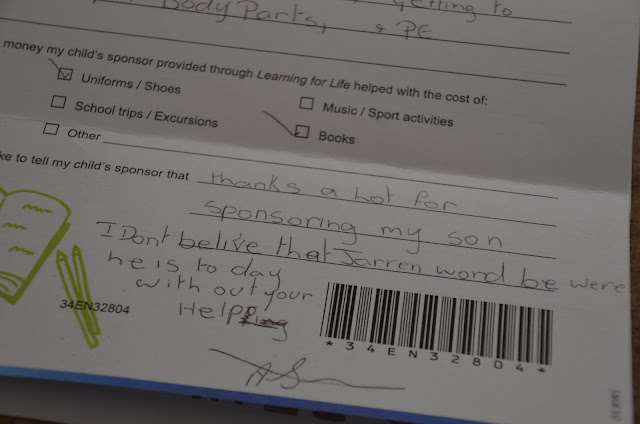 Getting to
Body Parts, & PE
money my child's sponsor provided through Learning for Life helped with the cost of:
Uniforms / Shoes
Music / Sport activities
School trips / Excursions
Books
Other
ke to tell my child's sponsor that thanks a hot for
sponsoring my son
I Dont belive that Jarren word be were
he is to day
with out your
Help
34EN32804
*34EN32804*